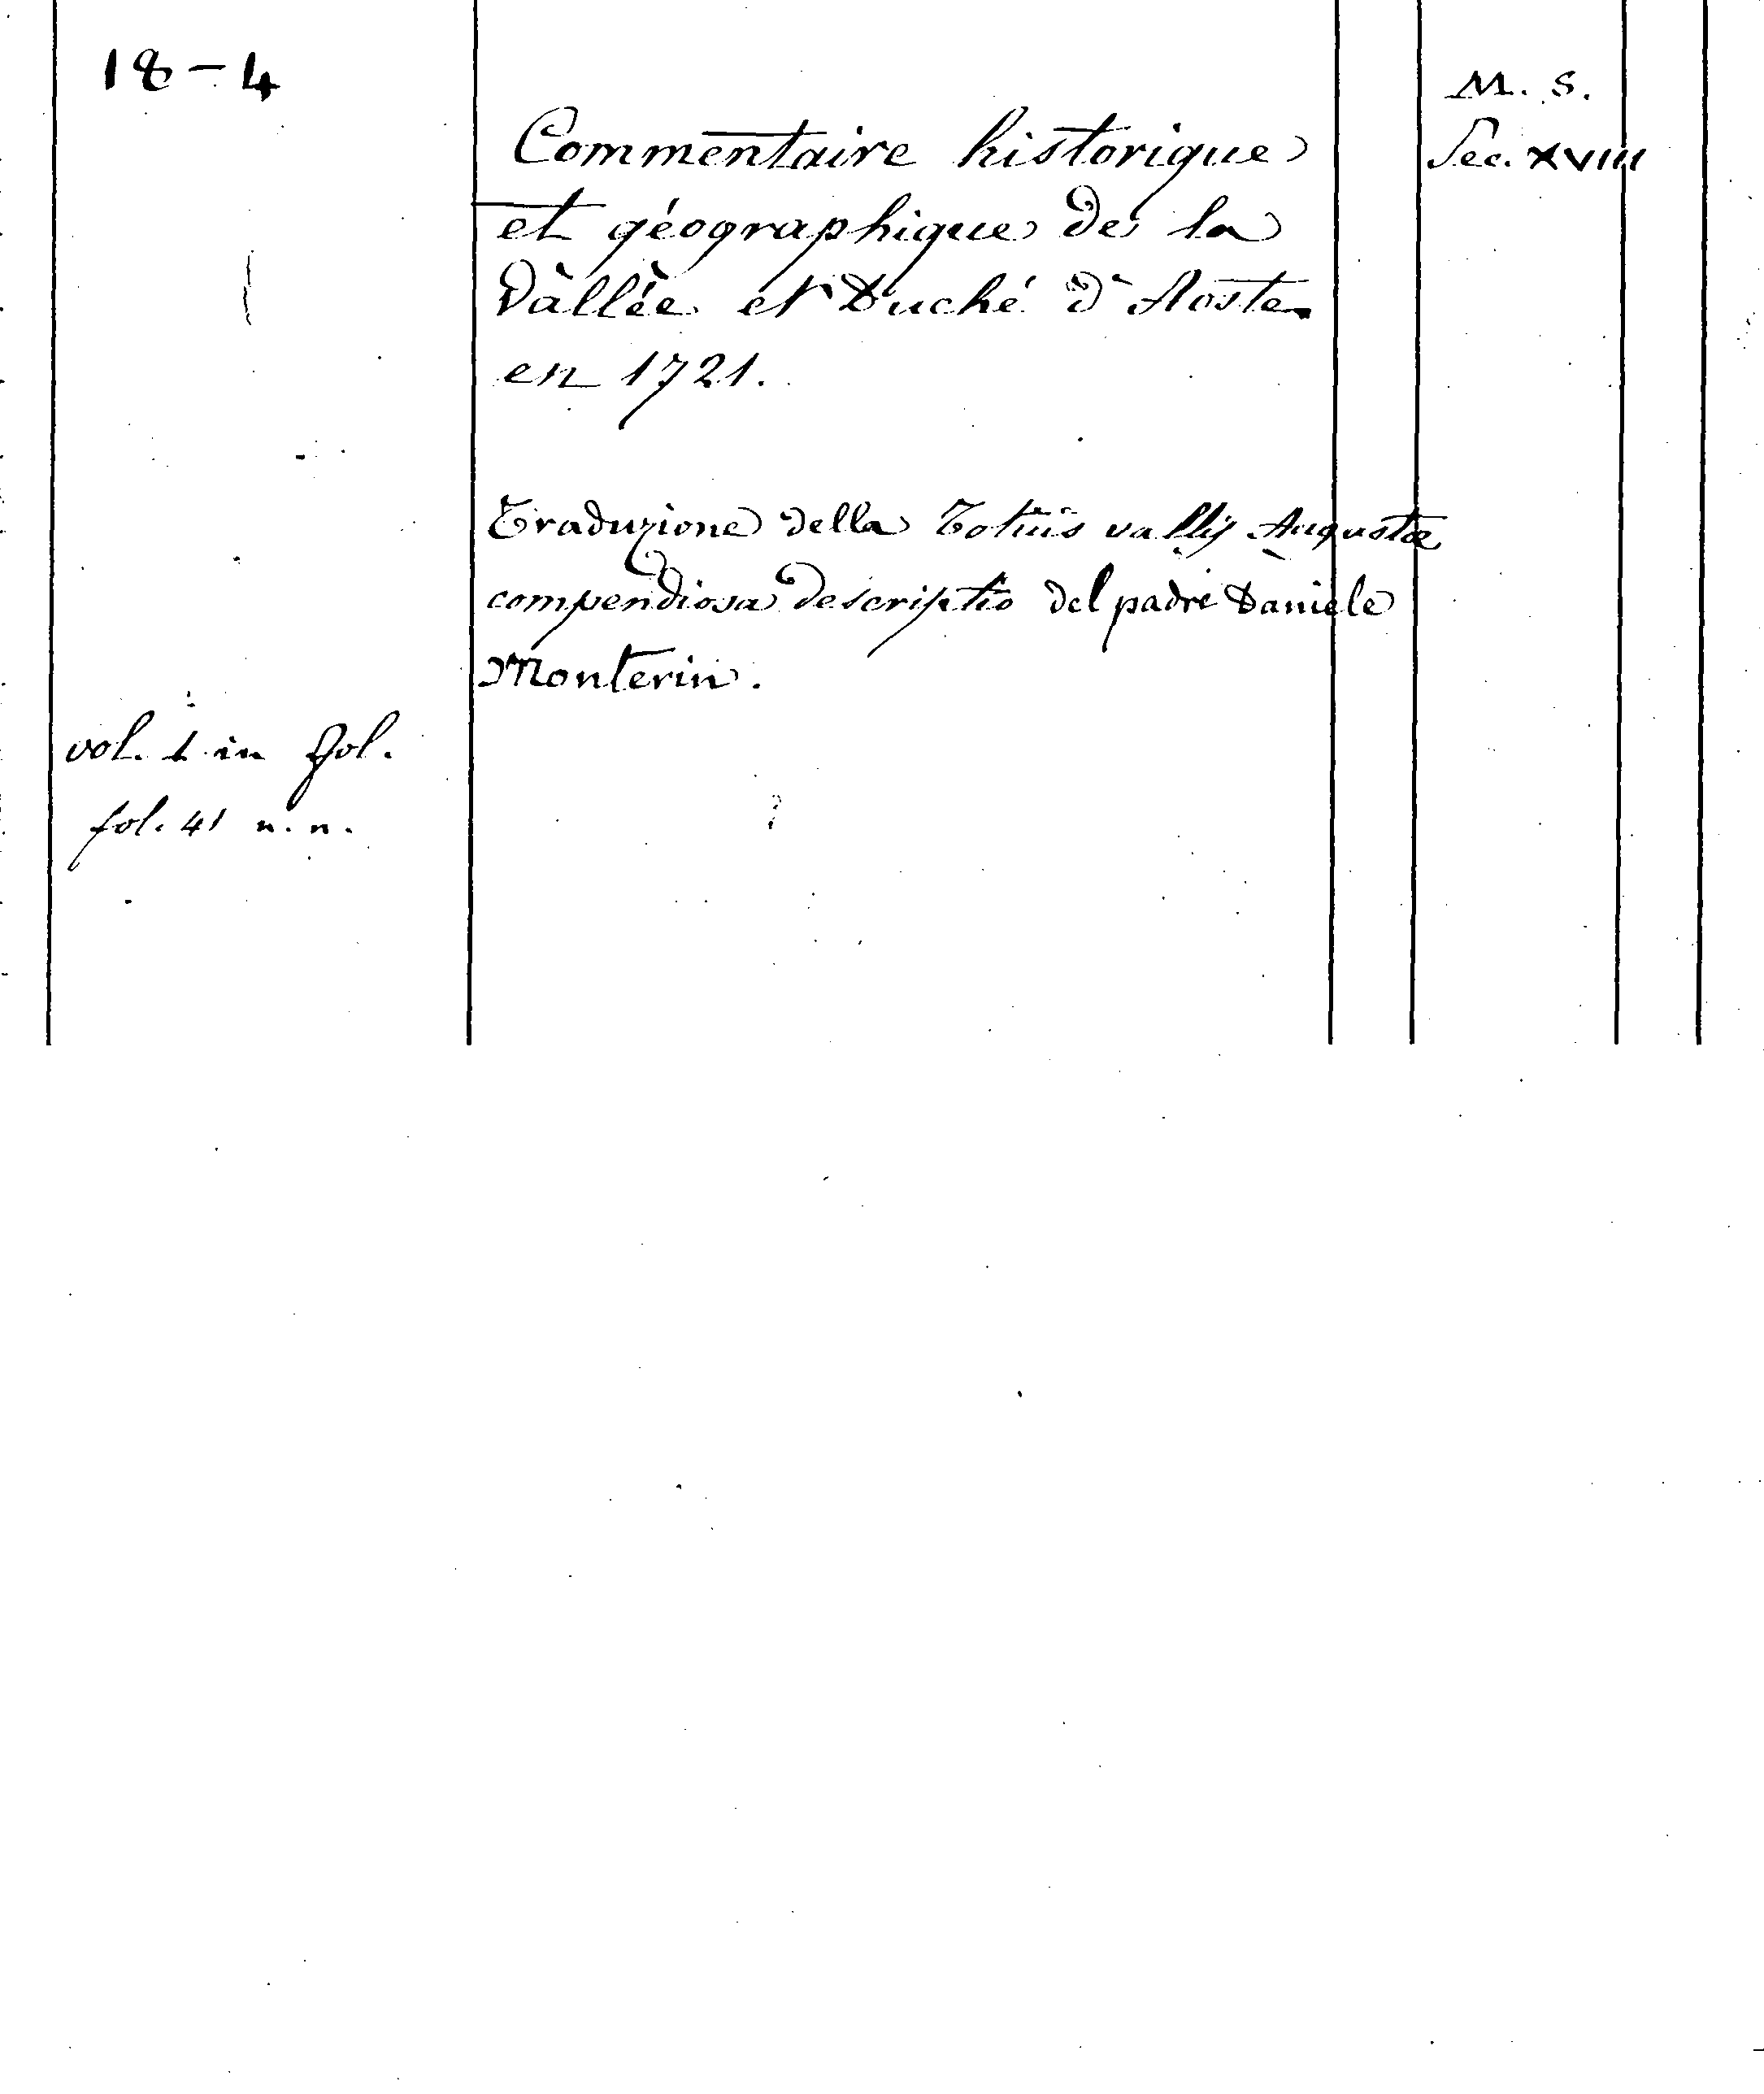 18-4
M. S.
Commentaire historique
Sec. XVIII
et géographique de la
Vallée et Duché d'Aoste
en 1721.
Traduzione della Totius vallis Augustæ
compendiosa descriptio del padre Daniele
Monterin.
vol. 1 in fol.
fol. 41 n. n.